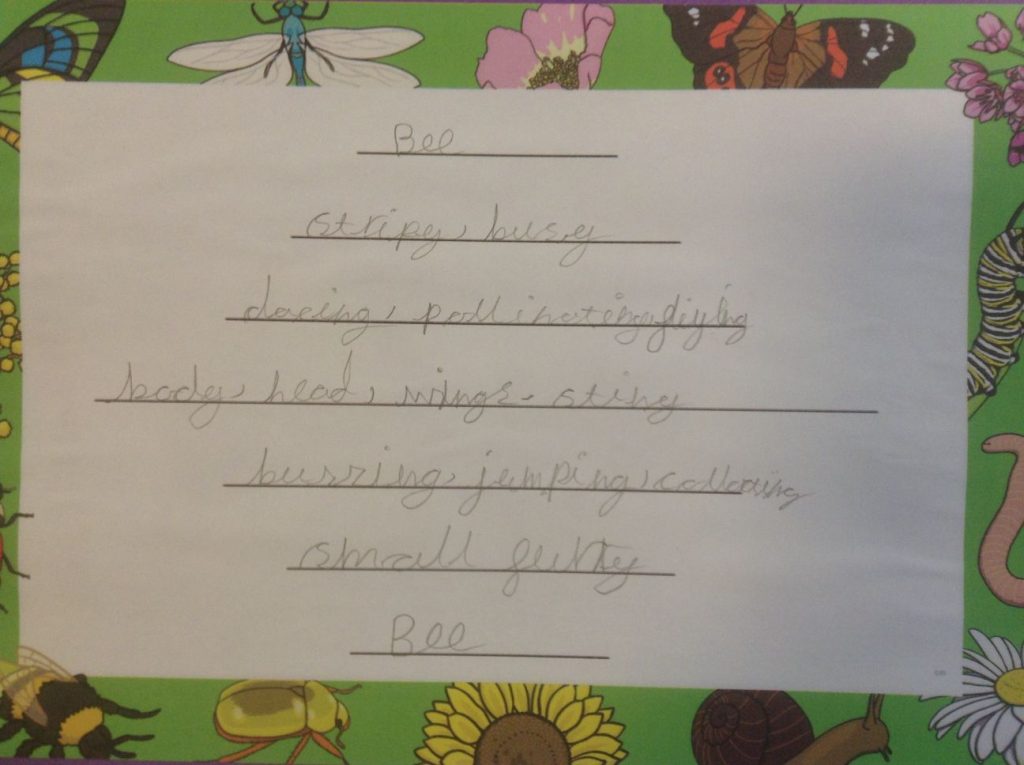 Bee
stripy, busy
dacing, pollinating, fliying
body, head, wings, sting
burring, jumping, collecting
small
Bee